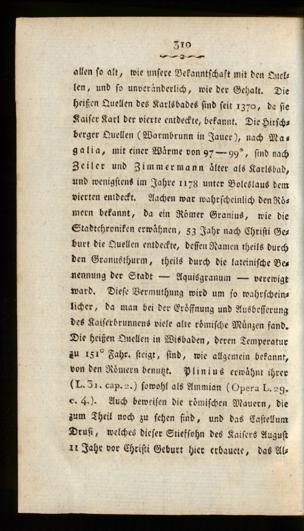 310
allen so alt, wie unsere Bekanntschaft mit den Quel-
len, und so unveränderlich, wie der Gehalt. Die
heißen Quellen des Karlsbades sind seit 1370, da sie
Kaiser Karl der vierte entdeckte, bekannt. Die Hirsch-
berger Quellen (Warmbrunn in Jauer), nach Ma-
galia, mit einer Wärme von 97—99°, sind nach
Zeiler und Zimmermann älter als Karlsbad,
und wenigstens im Jahre 1178 unter Boleslaus dem
vierten entdeckt. Aachen war wahrscheinlich den Rö-
mern bekannt, da ein Römer Granius, wie die
Stadtchroniken erwähnen, 53 Jahr nach Christi Ge-
burt die Quellen entdeckte, dessen Namen theils durch
den Granusthurm, theils durch die lateinische Be-
nennung der Stadt — Aquisgranum — verewigt
ward. Diese Vermuthung wird um so wahrschein-
licher, da man bei der Eröffnung und Ausbesserung
des Kaiserbrunnens viele alte römische Münzen fand.
Die heißen Quellen in Wisbaden, deren Temperatur
zu 151° Fahr. steigt, sind, wie allgemein bekannt,
von den Römern benutzt. Plinius erwähnt ihrer
(L. 31. cap. 2.) sowohl als Ammian (Opera L. 29.
c. 4.). Auch beweisen die römischen Mauern, die
zum Theil noch zu sehen sind, und das Castellum
Drusi, welches dieser Stiefsohn des Kaisers August
11 Jahr vor Christi Geburt hier erbauete, das Al-